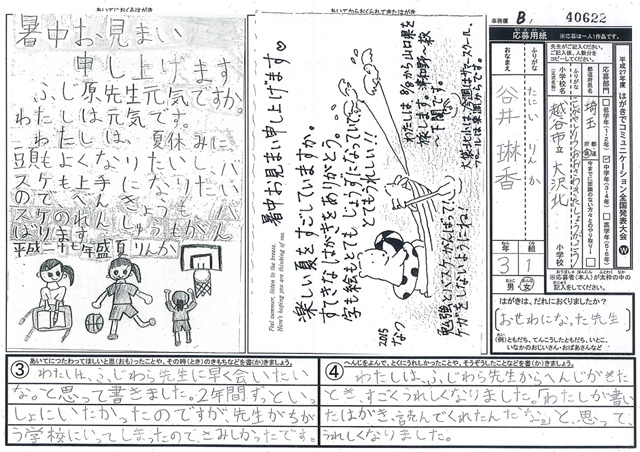 あいてにおくるはがき
暑中お見まい
申し上げます
ふじ原先生元気ですか。
わたしは元気です。
わたしは、夏休みに、
頭もよくなりたいし、バ
スケも上手になりたい
のでべんきょうも、バ
スケのれんしゅうもがん
ばります。
平成二十七年盛夏りんか
あいてからおくられてきたはがき
暑中お見まい申し上げます♡
楽しい夏をすごしていますか。
すてきなはがきをありがとう。
字も絵もとてもじょうずになっていて、
とてもうれしい!!
わたしは8/8から山口県を
旅します。津和野〜萩
〜下関です。
勉強とバスケがんばって!!
ケガをしないようにね!
2015
なつ
Feel summer, listen to the breeze.
Here's hoping you are thinking of me.
事務欄 B1 40622
応募用紙
※応募は一人1作品です。
平成27年度 はがきでコミュニケーション全国発表大会 W
応募部門
低学年(1・2年)
中学年(3・4年)
高学年(5・6年)
都道府県名
埼玉
小学校名
越谷市立大沢北
小学校
ふりがな
たにい りんか
おなまえ
谷井 琳香
3年
1組
男 女
はがきは、だれにおくりましたか?
おせわになった先生
(例)ともだち、てんこうしたともだち、いとこ、
いなかのおじいさん・おばあさんなど
③ あいてにつたわってほしいと思(おも)ったことや、その時(とき)のきもちなどを書(か)きましょう。
わたしは、ふじわら先生に早く会いたい
な。と思って書きました。2年間ずっといっ
しょにいたかったのですが、先生がちが
う学校にいってしまったので、さみしかったです。
④ へんじをよんで、とくにうれしかったことや、そうぞうしたことなどを書(か)きましょう。
わたしは、ふじわら先生からへんじがきた
とき、すごくうれしくなりました。「わたしが書い
たはがき、読んでくれたんだな。」と、思って、
うれしくなりました。